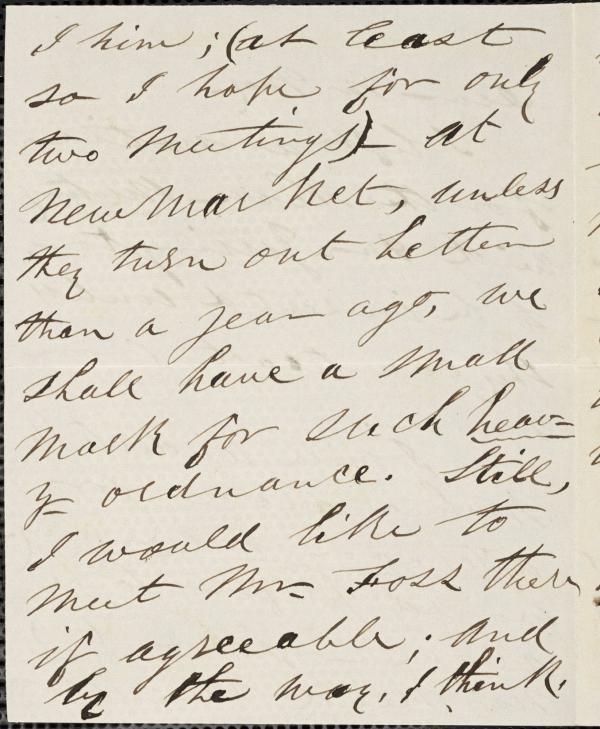 I him; (at least
so I hope for only
two meetings) - at
Newmarket, unless
they turn out better
than a year ago, we
shall have a small
mark for such heav=
y- ordnance. Still,
I would like to
meet Mr- Foss there
if agreeable; and
by the way, I think.